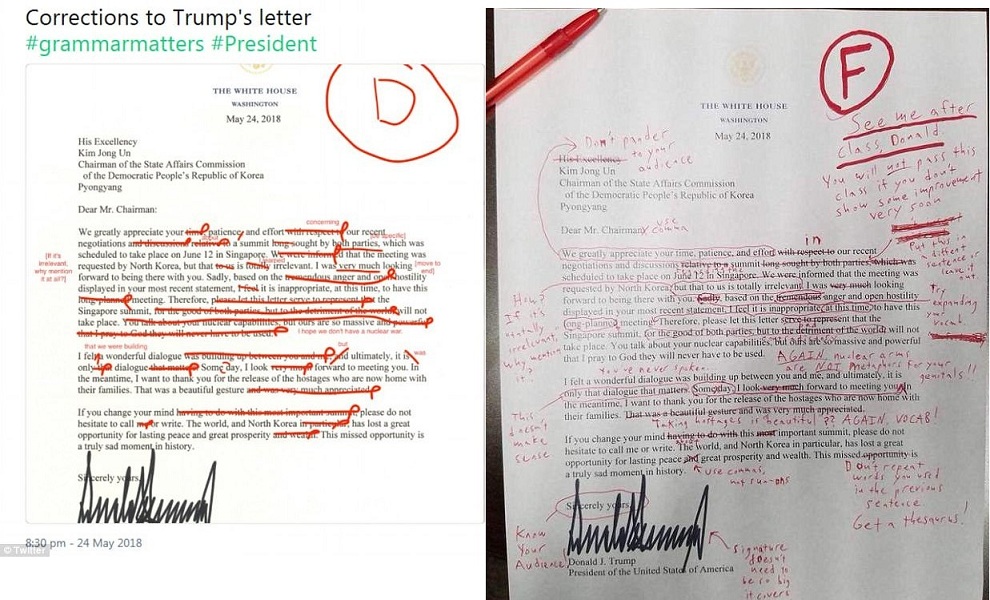 Corrections to Trump's letter
#grammarmatters #President
D
THE WHITE HOUSE
WASHINGTON
May 24, 2018
His Excellency
Kim Jong Un
Chairman of the State Affairs Commission
of the Democratic People's Republic of Korea
Pyongyang
Dear Mr. Chairman:
concerning
We greatly appreciate your time, patience, and effort with respect to our recent
negotiations and discussions relative to a summit long sought by both parties, which was
scheduled to take place on June 12 in Singapore. We were informed that the meeting was
[If it's irrelevant, why mention it at all?]
requested by North Korea, but that to us is totally irrelevant. I was very much looking
[move to end]
forward to being there with you. Sadly, based on the tremendous anger and open hostility
displayed in your most recent statement, I feel it is inappropriate, at this time, to have this
long-planned meeting. Therefore, please let this letter serve to represent that the
Singapore summit, for the good of both parties, but to the detriment of the world, will not
take place. You talk about your nuclear capabilities, but ours are so massive and powerful
that I pray to God they will never have to be used.
I hope we don't have a nuclear war.
that we were building
but
I felt a wonderful dialogue was building up between you and me, and ultimately, it is
was
only the dialogue that matters. Some day, I look very much forward to meeting you. In
the meantime, I want to thank you for the release of the hostages who are now home with
their families. That was a beautiful gesture and was very much appreciated.
If you change your mind having to do with this most important summit, please do not
hesitate to call me or write. The world, and North Korea in particular, has lost a great
opportunity for lasting peace and great prosperity and wealth. This missed opportunity is
a truly sad moment in history.
Sincerely yours,
8:30 pm - 24 May 2018
© Twitter
F
See me after
class, Donald.
You will not pass this
class if you don't
show some improvement
very soon
THE WHITE HOUSE
WASHINGTON
May 24, 2018
Don't pander
to your
audience
His Excellency
Kim Jong Un
Chairman of the State Affairs Commission
of the Democratic People's Republic of Korea
Pyongyang
use
comma
Dear Mr. Chairman:
in
We greatly appreciate your time, patience, and effort with respect to our recent
negotiations and discussions relative to a summit long sought by both parties, which was
scheduled to take place on June 12 in Singapore. We were informed that the meeting was
requested by North Korea, but that to us is totally irrelevant. I was very much looking
forward to being there with you. Sadly, based on the tremendous anger and open hostility
displayed in your most recent statement, I feel it is inappropriate, at this time, to have this
long-planned meeting. Therefore, please let this letter serve to represent that the
Singapore summit, for the good of both parties, but to the detriment of the world, will not
take place. You talk about your nuclear capabilities, but ours are so massive and powerful
that I pray to God they will never have to be used.
Put this in
sentence or
leave it
Try
expanding
your
vocab
How?
If it's
irrelevant,
why
mention
it.
AGAIN, nuclear arms
are NOT metaphors for your
genitals!!
You've never spoken.
I felt a wonderful dialogue was building up between you and me, and ultimately, it is
only that dialogue that matters. Some day, I look very much forward to meeting you. In
the meantime, I want to thank you for the release of the hostages who are now home with
their families. That was a beautiful gesture and was very much appreciated.
Taking hostages is beautiful?? AGAIN, VOCAB!
This
doesn't
make
sense
If you change your mind having to do with this most important summit, please do not
hesitate to call me or write. The world, and North Korea in particular, has lost a great
opportunity for lasting peace and great prosperity and wealth. This missed opportunity is
a truly sad moment in history.
use commas,
not run-ons
Don't repeat
words you used
in the previous
sentence.
Get a thesaurus!
Sincerely yours,
Know
Your
Audience
Donald J. Trump
President of the United States of America
Signature
doesn't
need to
be so big
it covers